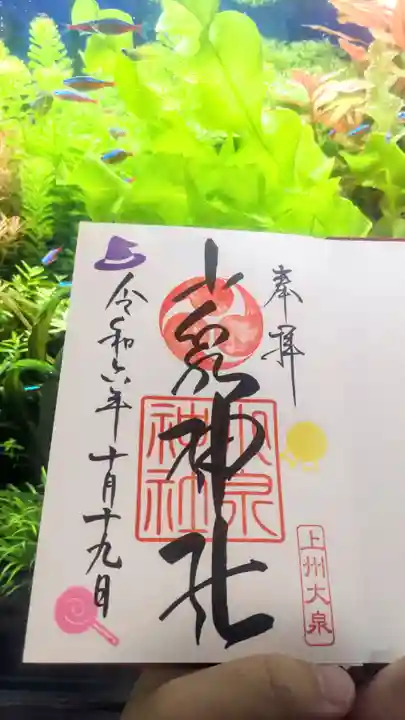 奉拝
上州大泉
小泉神社
小泉
神社
令和六年十月十九日